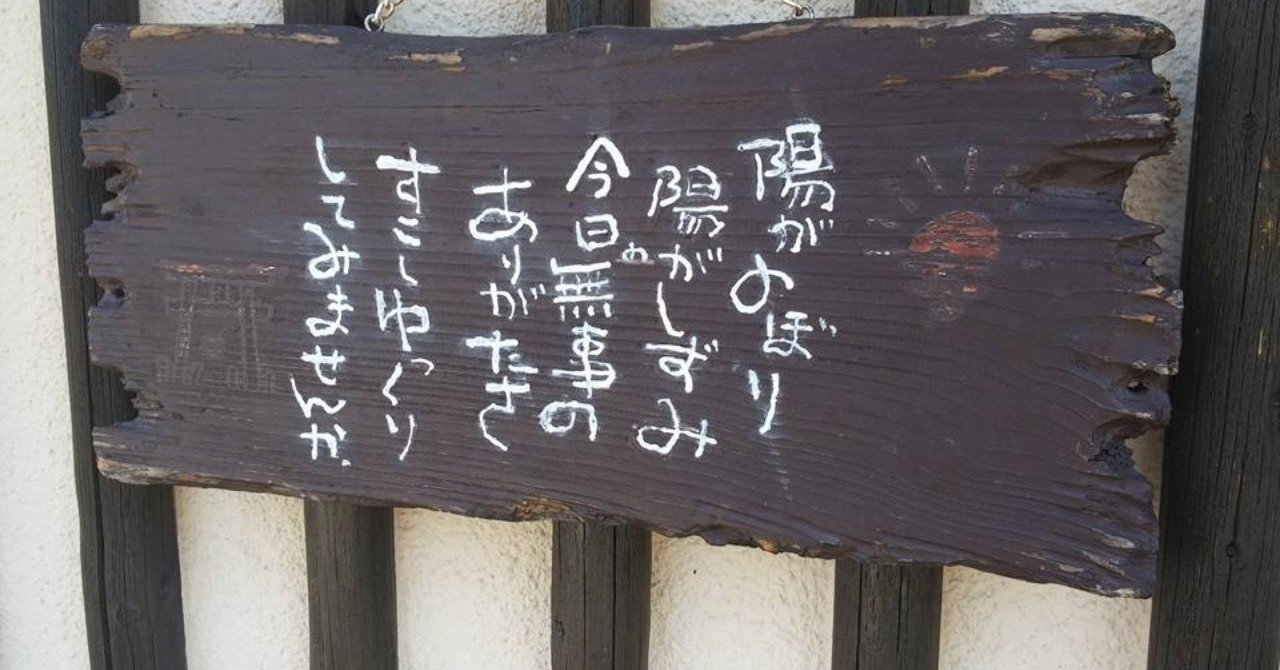 陽がのぼり
陽がしずみ
今日の無事の
ありがたさ
すこしゆっくり
してみませんか